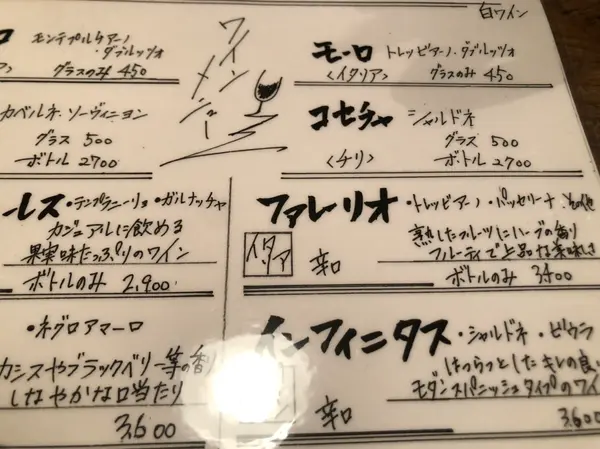 白ワイン
ワインメニュー
モンテプルチアーノ
・ダブルッツォ
グラスのみ 450
カベルネ・ソーヴィニヨン
グラス 500
ボトル 2700
レス・テンプラニーリョ・ガルナッチャ
カジュアルに飲める
果実味たっぷりのワイン
ボトルのみ 2,900
・ネグロアマーロ
カシスやブラックベリー等の香り
しなやかな口当たり
3,600
モーロ トレッビアーノ・ダブルッツォ
<イタリア> グラスのみ 450
コセチャ シャルドネ
グラス 500
<チリ> ボトル 2700
ファレーリオ・トレッビアーノ・パッセリーナ・その他
熟したフルーツにハーブの香り
フルーティで上品な美味しさ
イタリア 辛口 ボトルのみ 3400
インフィニタス・シャルドネ・ビウラ
はつらつとしたキレの良い
モダンスパニッシュタイプのワイ
辛口 3,600